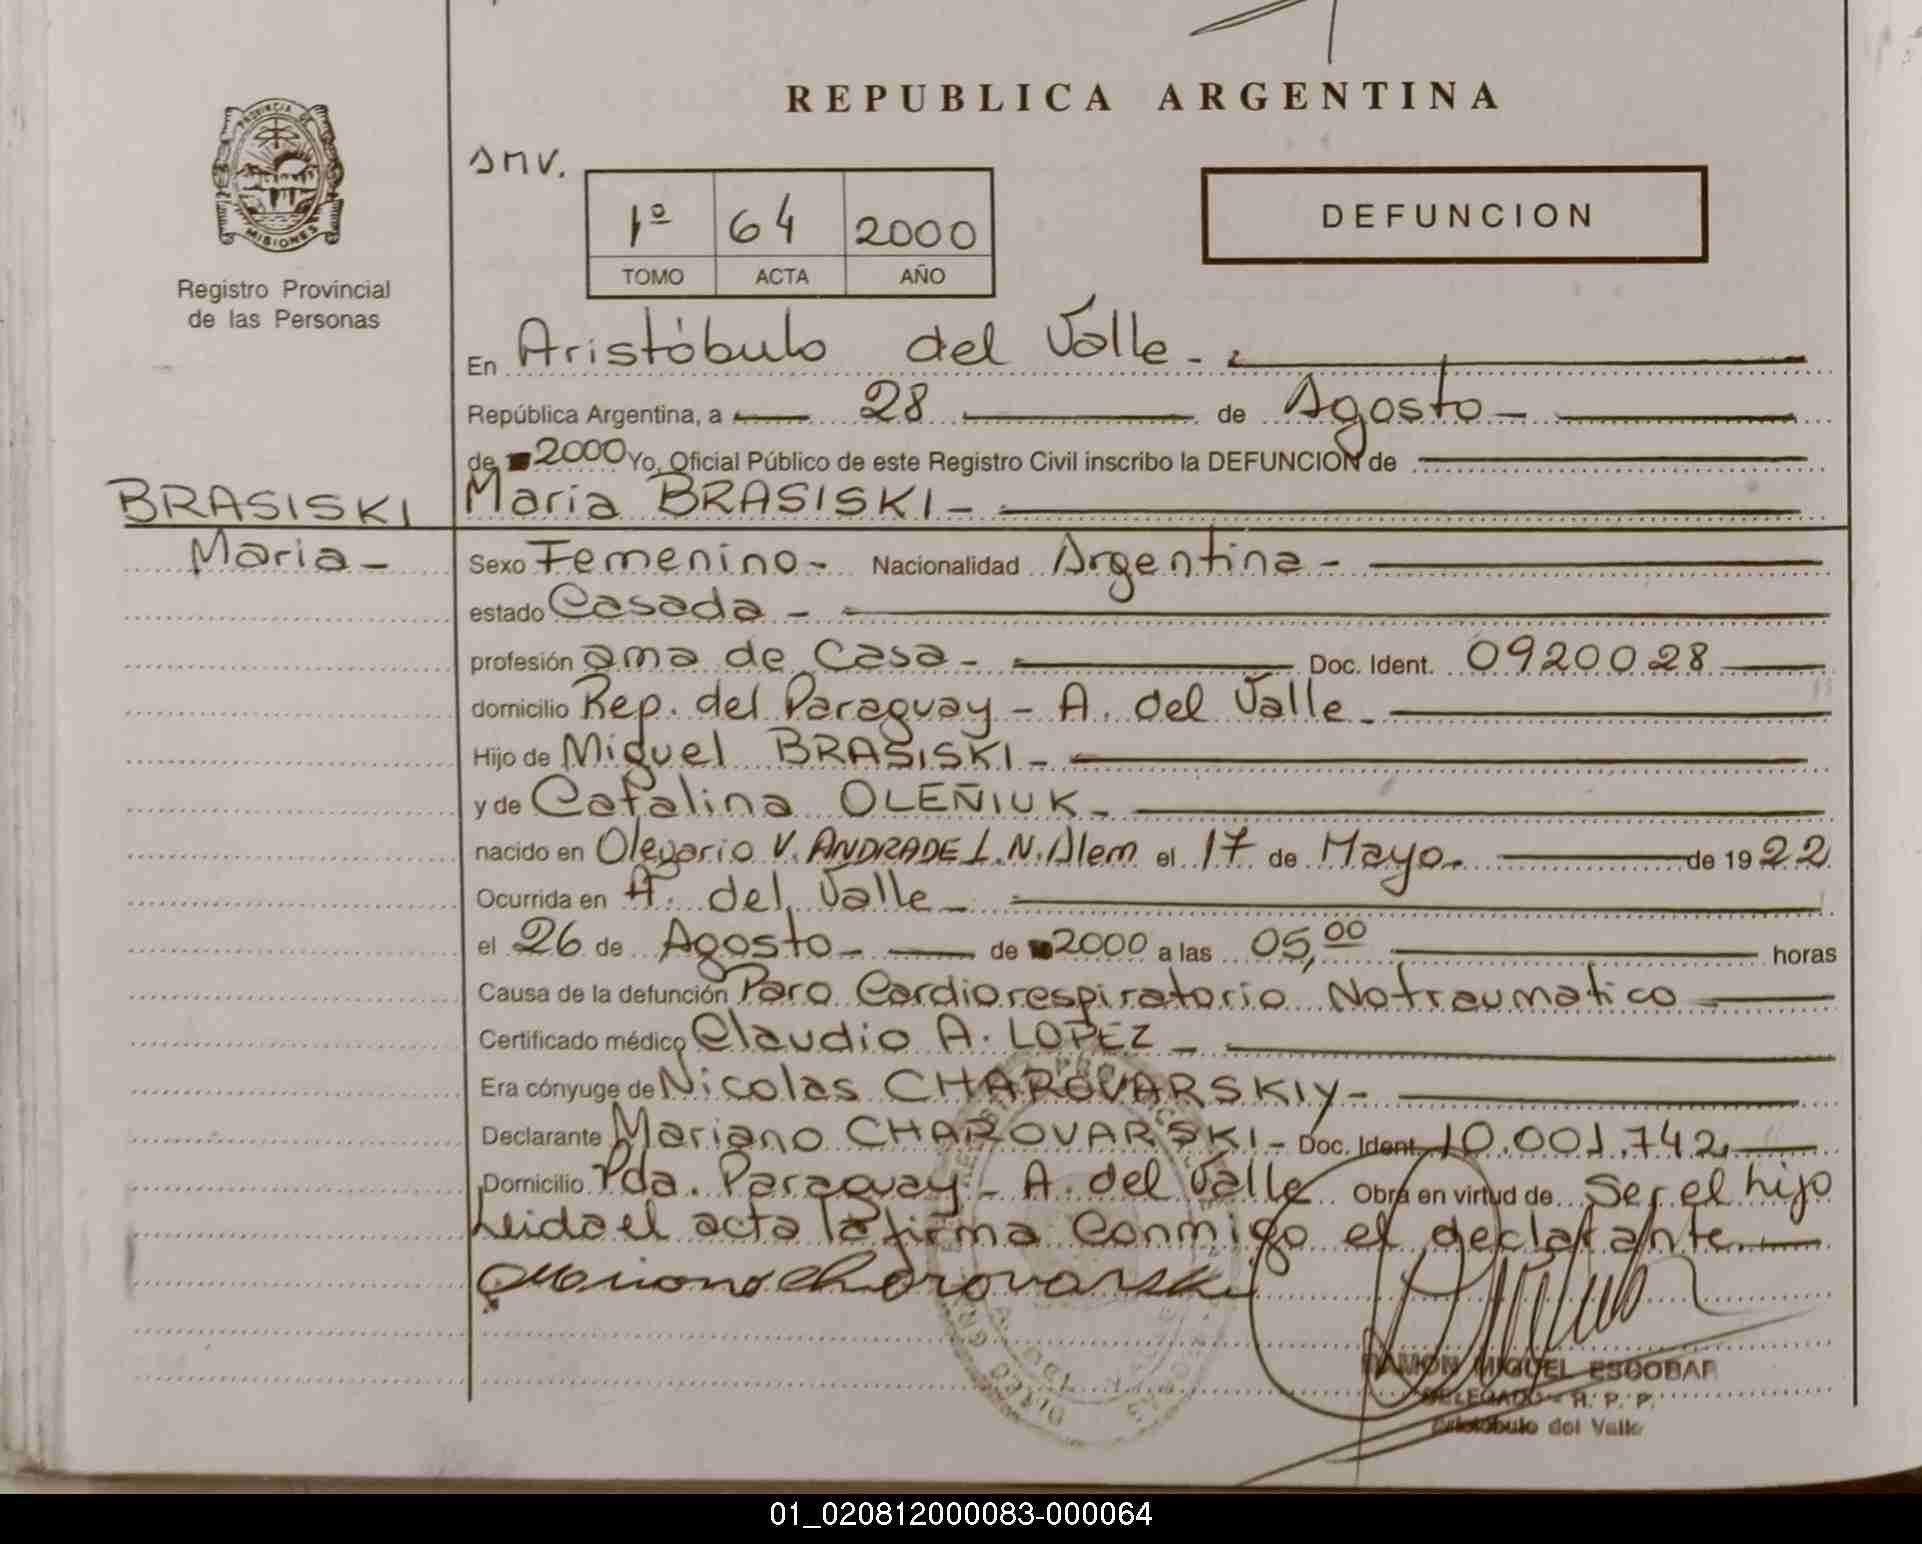 REPUBLICA ARGENTINA
PROVINCIA DE
MISIONES
Registro Provincial
de las Personas
SMV.
1º 64 2000
TOMO ACTA AÑO
DEFUNCION
En Aristóbulo del Valle -
República Argentina, a 28 de Agosto -
de 2000 Yo, Oficial Público de este Registro Civil inscribo la DEFUNCION de
BRASISKI
Maria -
Maria BRASISKI -
Sexo Femenino - Nacionalidad Argentina -
estado Casada -
profesión ama de Casa - Doc. Ident. 0920028
domicilio Rep. del Paraguay - A. del Valle -
Hijo de Miguel BRASISKI -
y de Catalina OLEÑIUK -
nacido en Olegario V. ANDRADE L. N. Alem el 17 de Mayo - de 1922
Ocurrida en A. del Valle -
el 26 de Agosto - de 2000 a las 05,00 horas
Causa de la defunción Paro Cardiorespiratorio No traumatico
Certificado médico Claudio A. LOPEZ -
Era cónyuge de Nicolas CHAROVARSKIY -
Declarante Mariano CHAROVARSKI - Doc. Ident. 10.001.742
Domicilio Pda. Paraguay - A. del Valle Obra en virtud de Ser el hijo
Leida el acta la firma Conmigo el declarante
Mariano Charovarski
RAMON MIGUEL ESCOBAR
DELEGADO - R. P. P.
Aristóbulo del Valle
01_020812000083-000064